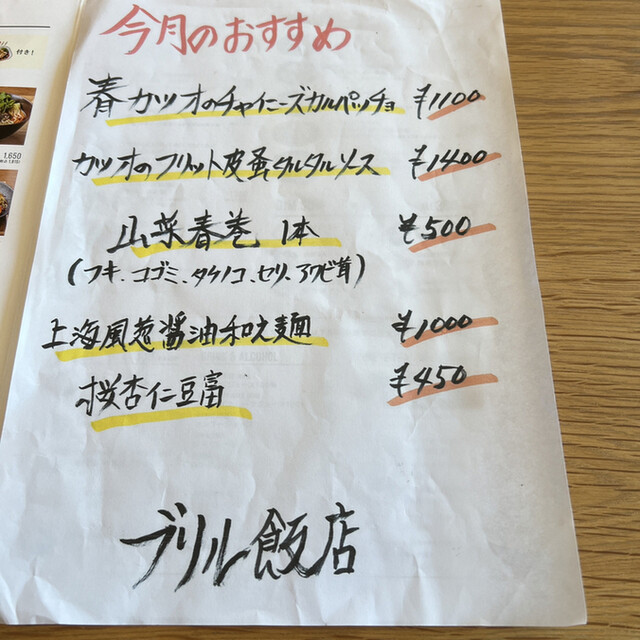 今月のおすすめ
春カツオのチャイニーズカルパッチョ ¥1100
カツオのフリット皮蚤タルタルソース ¥1400
山菜春巻 1本 ¥500
(フキ、コゴミ、タケノコ、セリ、アワビ茸)
上海風葱醤油和え麺 ¥1000
桜杏仁豆富 ¥450
ブリル飯店
付き!
1,650